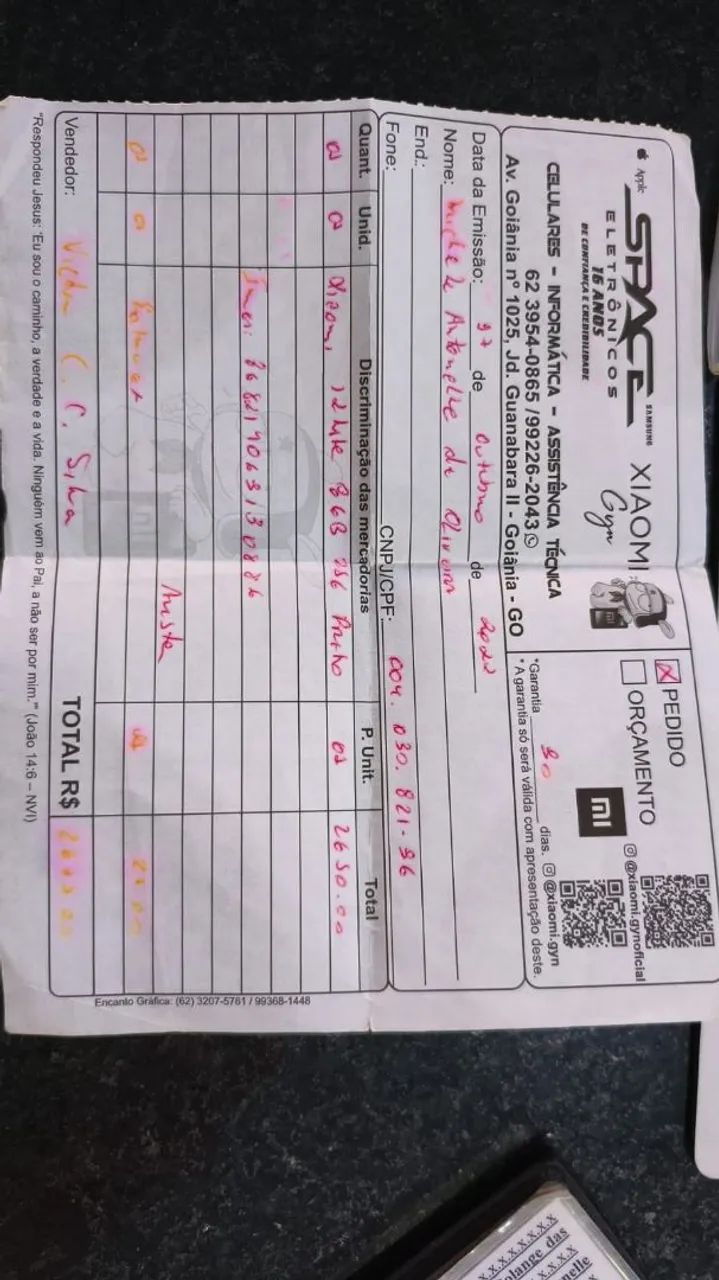 Apple
SPACE
SAMSUNG
ELETRÔNICOS
16 ANOS
DE CONFIANÇA E CREDIBILIDADE
XIAOMI
Gyn
CELULARES - INFORMÁTICA - ASSISTÊNCIA TÉCNICA
62 3954-0865 / 99226-2043
Av. Goiânia nº 1025, Jd. Guanabara II - Goiânia - GO
X PEDIDO
ORÇAMENTO
mi
@xiaomi.gynoficial
@xiaomi.gyn
*Garantia 90 dias.
* A garantia só será válida com apresentação deste.
Data da Emissão: de outubro de 2022
Nome: Antonelle de Oliveira
End.:
Fone: CNPJ/CPF: 004.030.821-96
Quant. Unid. Discriminação das mercadorias P. Unit. Total
Xiaomi 12 Lite 8GB 256 Preto 2650.00
Imei:
Vendedor: C. C. Silva TOTAL R$
"Respondeu Jesus: 'Eu sou o caminho, a verdade e a vida. Ninguém vem ao Pai, a não ser por mim.'" (João 14:6 – NVI)
Encanto Gráfica: (62) 3207-5761 / 99368-1448
x.x.x.x.x.x.x
lange das
elle